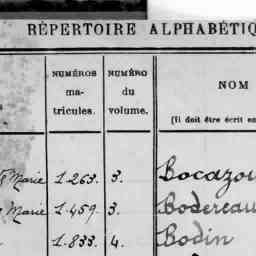 RÉPERTOIRE ALPHABÉTIQ
NUMÉROS ma- tricules.
NUMÉRO du volume.
NOM
(Il doit être écrit en
Marie 1.263. 3. Bocazou
Marie 1.459. 3. Bodereau
1.833. 4. Bodin